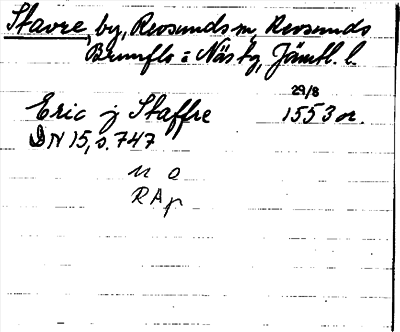 Stavre, by, Revsunds sn, Revsunds
Brunflo = Näs tg, Jämtl. l.
29/8
Eric j Staffre 1553 or.
DN 15, s. 747
n o
RAp